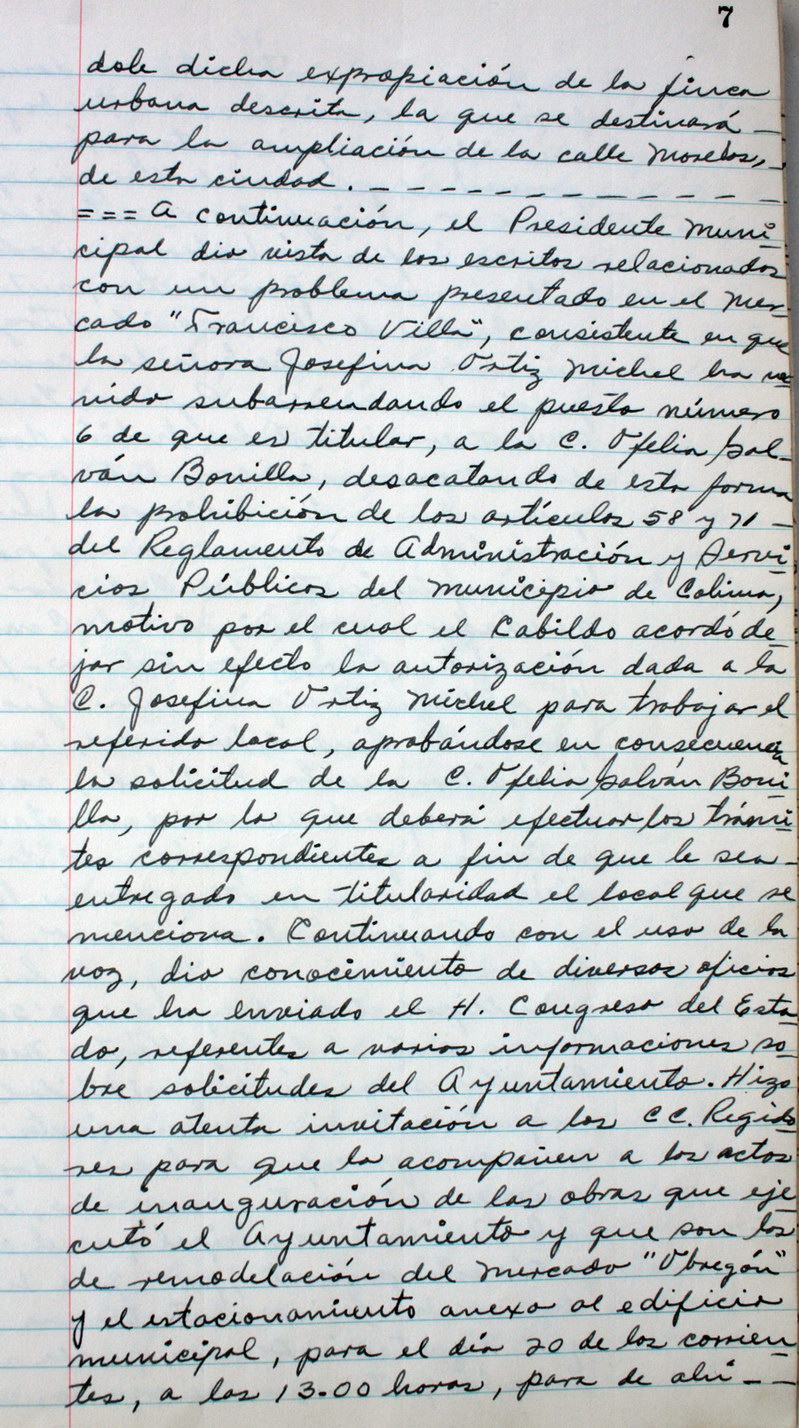 7
dole dicha expropiación de la finca
urbana descrita, la que se destinará —
para la ampliación de la calle Morelos, -
de esta ciudad. — — — — — — — — — — —
=== A continuación, el Presidente Muni
cipal dio vista de los escritos relacionados
con un problema presentado en el Mer-
cado "Francisco Villa", consistente en que
la señora Josefina Ortiz Michel ha ve
nido subarrendando el puesto número
6 de que es titular, a la C. Ofelia Gal-
ván Bonilla, desacatando de esta forma
la prohibición de los artículos 58 y 71 —
del Reglamento de Administración y Servi
cios Públicos del Municipio de Colima,
motivo por el cual el Cabildo acordó de-
jar sin efecto la autorización dada a la
C. Josefina Ortiz Michel para trabajar el
referido local, aprobándose en consecuencia
la solicitud de la C. Ofelia Galván Boni
lla, por lo que deberá efectuar los trámi
tes correspondientes a fin de que le sea —
entregado en titularidad el local que se
menciona. Continuando con el uso de la
voz, dio conocimiento de diversos oficios
que ha enviado el H. Congreso del Esta
do, referentes a varias informaciones so-
bre solicitudes del Ayuntamiento. Hizo
una atenta invitación a los CC. Regido
res para que lo acompañen a los actos
de inauguración de las obras que eje
cutó el Ayuntamiento y que son los
de remodelación del Mercado "Obregón"
y el estacionamiento anexo al edificio
municipal, para el día 20 de los corrien
tes, a las 13.00 horas, para de ahí — —